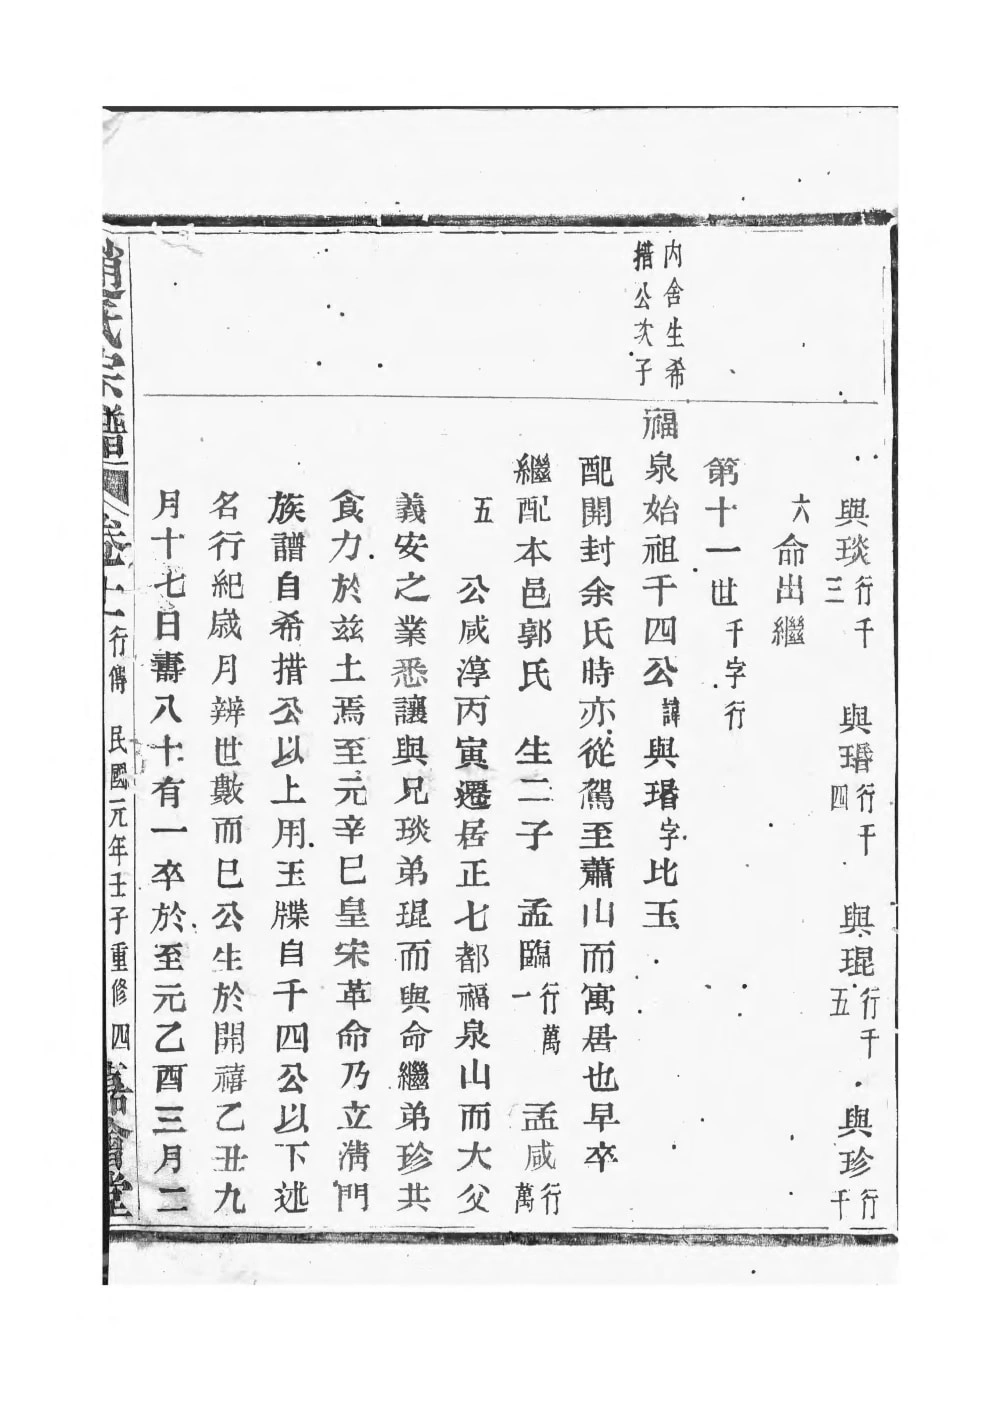 與琰行千三　與瑨行千四　與琨行千五　與珍行千
六命出繼
第十一世千字行
內舍生希措公次子
福泉始祖千四公諱與瑨字比玉
配開封余氏時亦從駕至蕭山而寓居也早卒
繼配本邑郭氏　生二子　孟臨行萬一　孟咸行萬
五
公咸淳丙寅遷居正七都福泉山而大父
義安之業悉讓與兄琰弟琨而與命繼弟珍共
食力於兹土焉至元辛巳皇宋革命乃立清門
族譜自希措公以上用玉牒自千四公以下述
名行紀歲月辨世數而已公生於開禧乙丑九
月十七日壽八十有一卒於至元乙酉三月二
趙氏宗譜　卷十一　行傳　民國元年壬子重修　四　堂